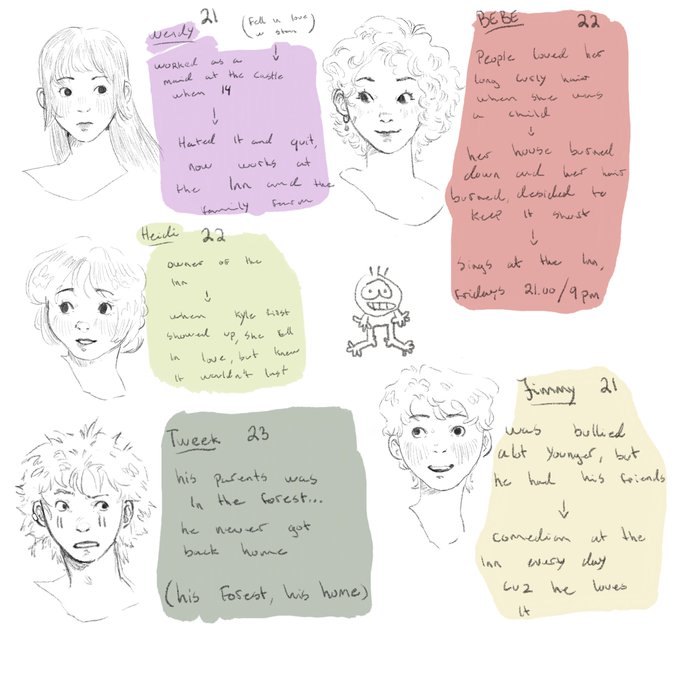 Wendy 21
(Fell in love
w stan)
↓
worked as a
maid at the castle
when 14
↓
Hated it and quit,
now works at
the Inn and the
family farm
BEBE 22
People loved her
long curly hair
when she was
a child
↓
her house burned
down and her hair
burned, desided to
keep it short
↓
Sings at the Inn,
Fridays 21.00/9 pm
Heidi 22
owner of the
Inn
↓
when Kyle first
showed up, she fell
in love, but knew
it wouldn't last
Tweek 23
his parents was
in the forest...
he never got
back home
(his Forest, his home)
Jimmy 21
was bullied
alot younger, but
he had his friends
↓
comedian at the
Inn every day
cuz he loves
it